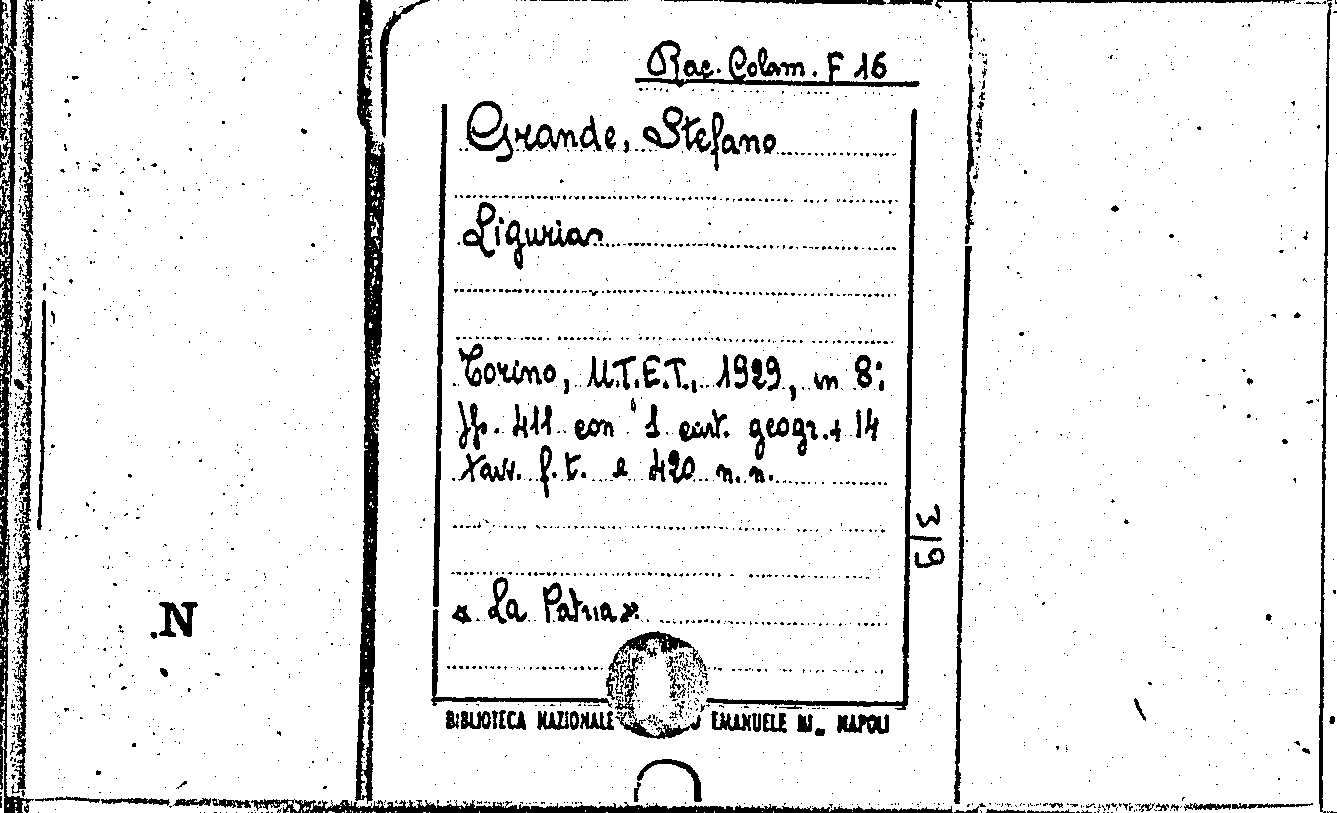 Rac. Colam. F 16
Grande, Stefano
Liguria
Torino, U.T.E.T., 1929, in 8:
pp. 411 con 1 cart. geogr. + 14
tavv. f. t. e 420 n. n.
« La Patria »
319
.N
BIBLIOTECA NAZIONALE EMANUELE III_ NAPOLI